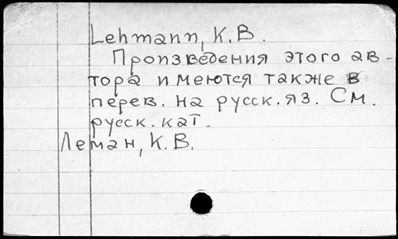 Lehmann, К.В.
Произведения этого ав-
тора имеются также в
перев. на русск.яз. См.
русск.кат.
Леман, К.В.